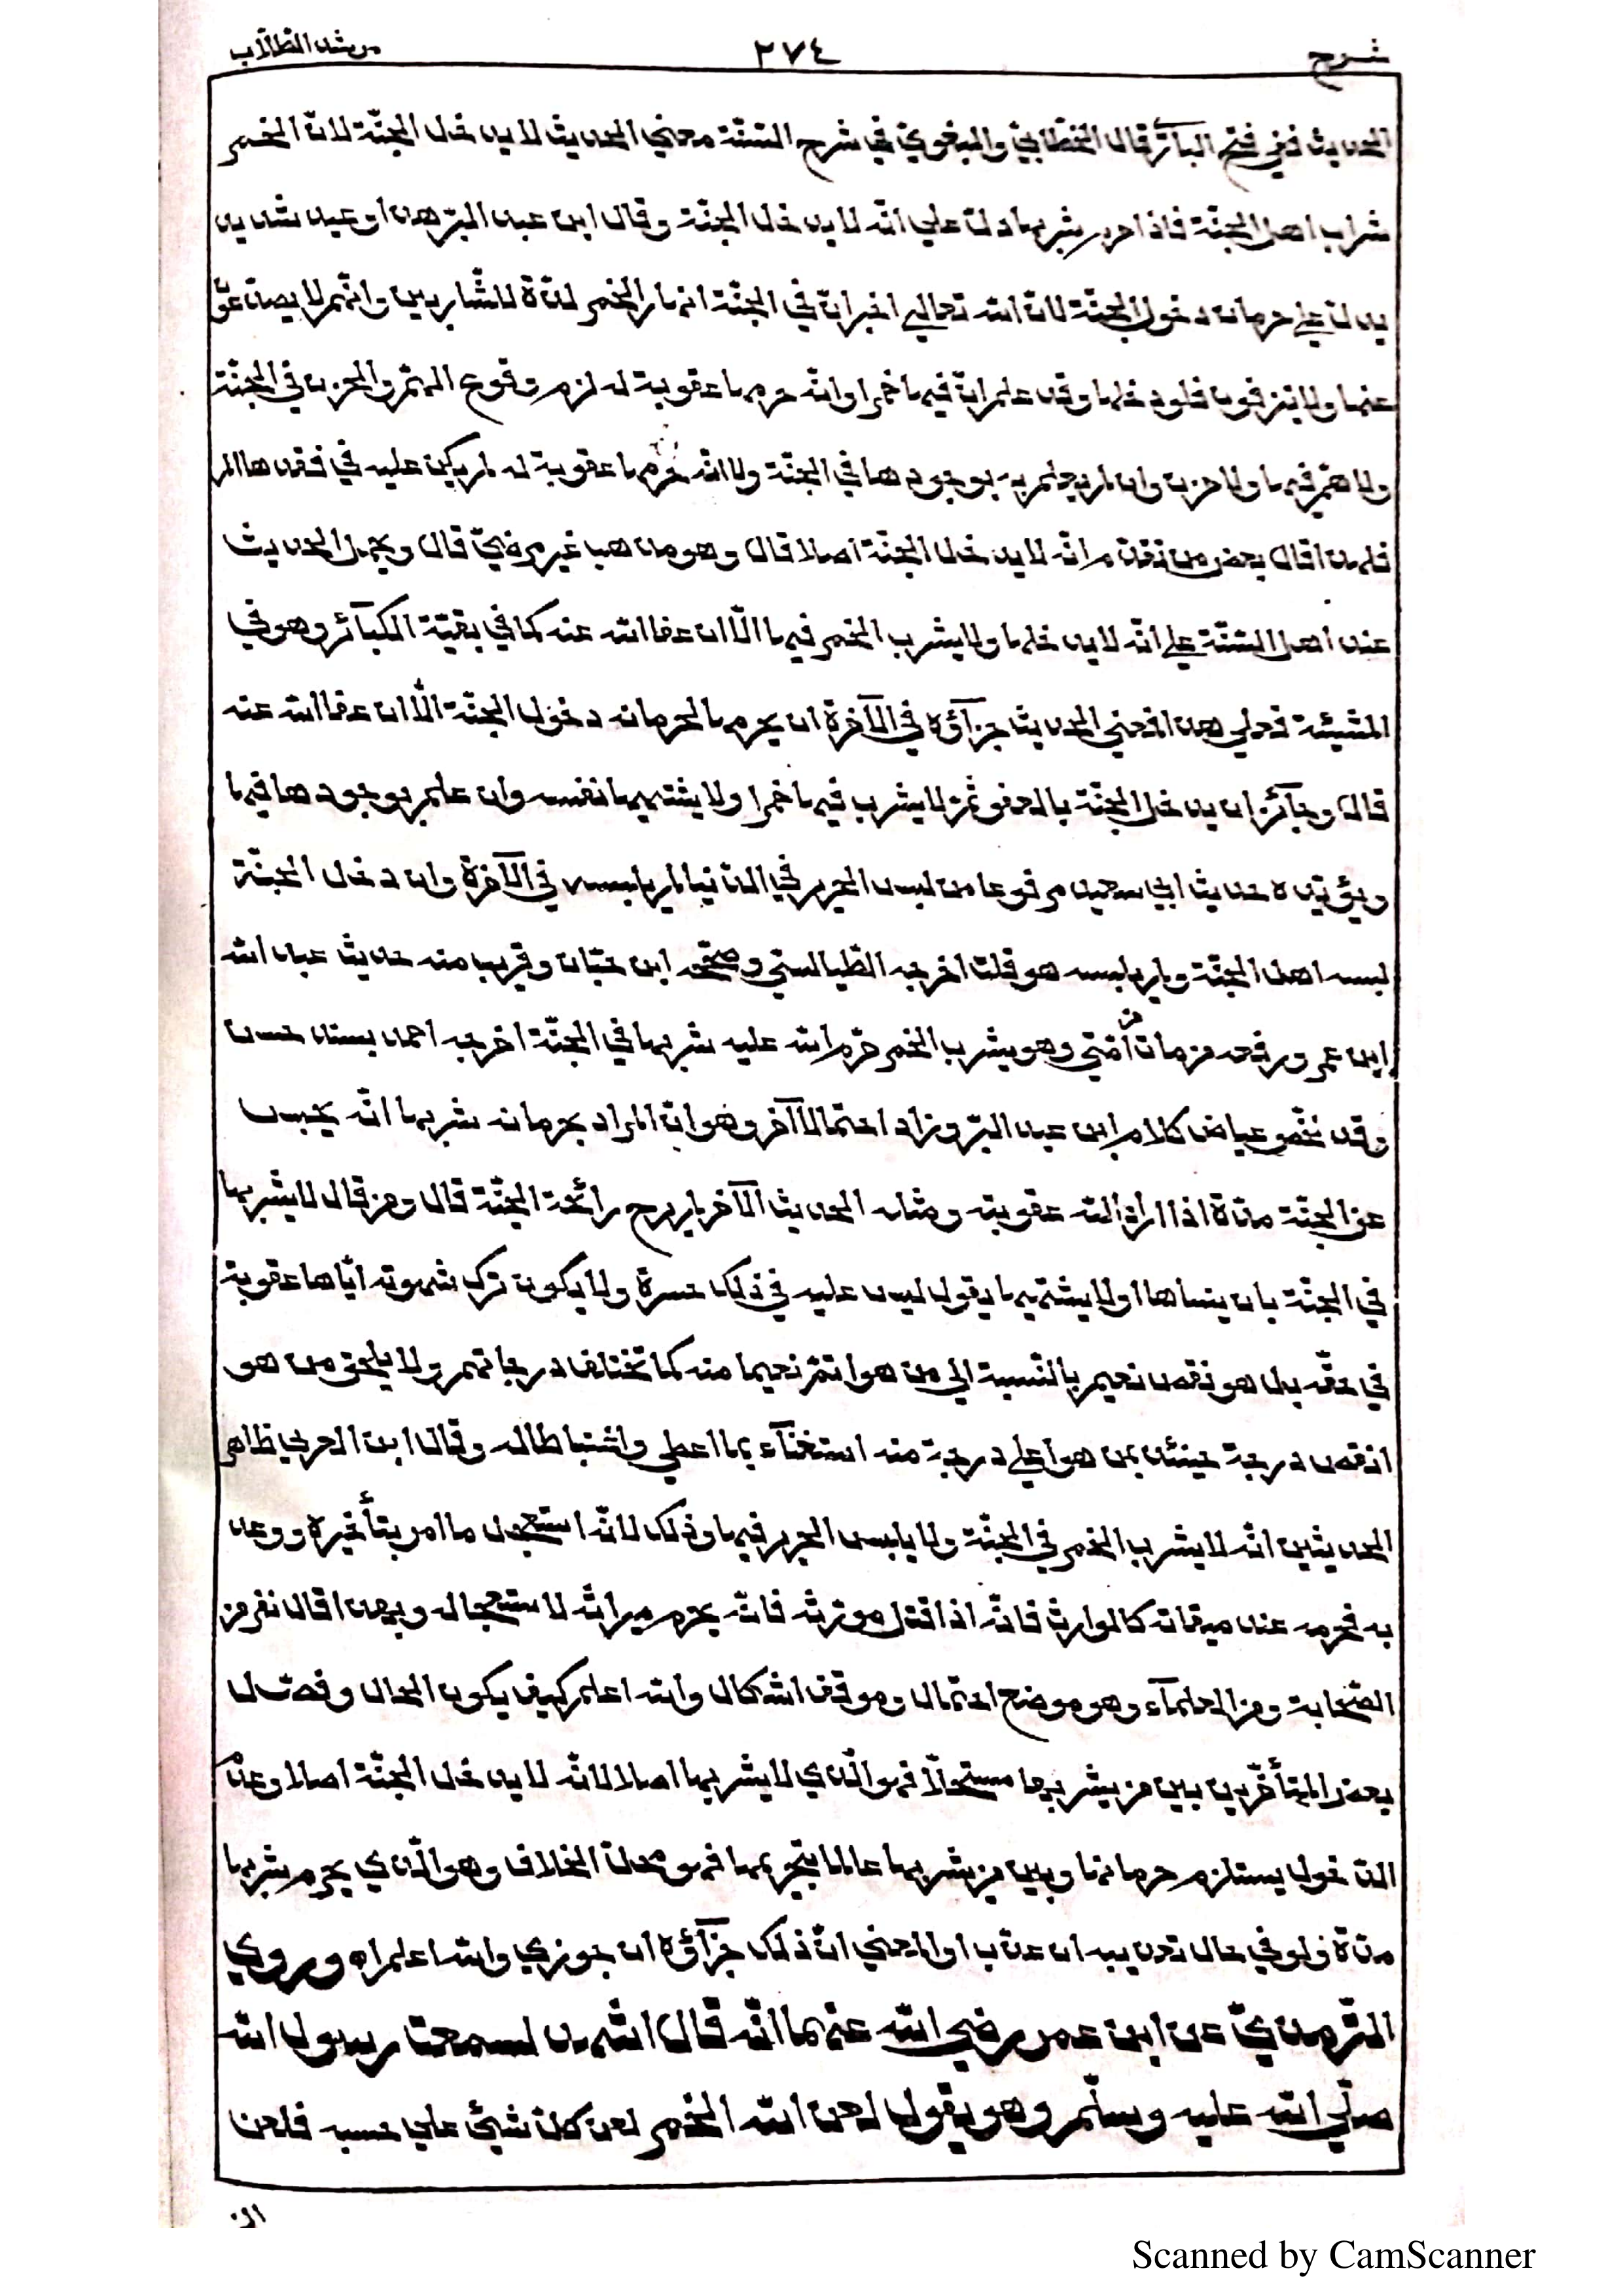 شرح ٢٧٤ مرشد الطلّاب
الحديث ففي فتح البآري قال الخطّابيّ والبغويّ في شرح السّنّة معني الحديث لا يدخل الجنّة لانّ الخمر
شراب اهل الجنّة فاذا حرم شربها دلّ علي انّه لا يدخل الجنّة وقال ابن عبد البرّ هذا وعيد شديد
يدلّ علي حرمان دخول الجنّة لانّ الله تعالي اخبر انّ في الجنّة انهار الخمر لذّة للشّاربين وانّهم لا يصدّعون
عنها ولا ينزفون فلو دخلها وقد علم انّ فيها خمرا وانّه حرمها عقوبة له لزم وقوع الهمّ والحزن في الجنّة
ولا همّ فيها ولا حزن وان لم يعلم به بوجودها في الجنّة ولا انّه حرمها عقوبة له لم يكن عليه في فقدها الم
فلهذا قال بعض من تقدّم انّه لا يدخل الجنّة اصلا قال وهو مذهب غير مرضيّ قال ويحمل الحديث
عند أهل السّنّة علي انّه لا يدخلها ولا يشرب الخمر فيها الّا ان عفا الله عنه كما في بقيّة الكبآئر وهو في
المشيئة فعلي هذا فمعني الحديث جزآؤه في الآخرة ان يحرمها لحرمانه دخول الجنّة الّا ان عفا الله عنه
قال وجآئز ان يدخل الجنّة بالعفو ثمّ لا يشرب فيها خمرا ولا يشتهيها نفسه وان علم بوجودها فيها
ويؤيّده حديث ابي سعيد مرفوعا من لبس الحرير في الدّنيا لم يلبسه في الآخرة وان دخل الجنّة
لبسه اهل الجنّة ولم يلبسه هو قلت اخرجه الطّيالسيّ وصحّحه ابن حبّان وقريب منه حديث عبد الله
ابن عمرو رفعه من مات من أمّتي وهو يشرب الخمر حرّم الله عليه شربها في الجنّة اخرجه احمد بسند حسن
وقد لخّص عياض كلام ابن عبد البرّ وزاد احتمالا آخر وهو انّ المراد بحرمانه شربها انّه يحبس
عن الجنّة مدّة اذا اراد الله عقوبته ومثله الحديث الآخر لم يرح رائحة الجنّة قال ومن قال لا يشربها
في الجنّة بان ينساها او لا يشتهيها يقول ليس عليه في ذلك حسرة ولا يكون ترك شهوته ايّاها عقوبة
في حقّه بل هو نقص نعيم بالنّسبة الي من هو اتمّ نعيما منه كما تختلف درجاتهم ولا يلحق من هو
انقص درجة حينئذ بمن هو أعلي درجة منه استغنآء بما اعطي واغتباطا له وقال ابن العربي ظاهر
الحديثين انّه لا يشرب الخمر في الجنّة ولا يلبس الحرير فيها وذلك لانّه استعجل ما امر بتأخيره ووعد
به فحرمه عند ميقاته كالوارث فانّه اذا قتل مورّثه فانّه يحرم ميراثه لاستعجاله وبهذا قال نفر من
الصّحابة ومن العلمآء وهو موضع احتمال وموقف اشكال والله اعلم كيف يكون الحال وفصل
بعض المتأخّرين بين من يشربها مستحلّا فهو الّذي لا يشربها اصلا لانّه لا يدخل الجنّة اصلا وعدم
الدّخول يستلزم حرمانها وبين من يشربها عالما بتحريمها فهو محلّ الخلاف وهو الّذي يحرم شربها
مدّة ولو في حال تعذيبه ان عذّب او المعني انّ ذلك جزآؤه ان جوزي والله اعلم اه وروي
التّرمذيّ عن ابن عمر رضي الله عنهما انّه قال اشهد لسمعت رسول الله
صلّي الله عليه وسلّم وهو يقول لعن الله الخمر لعن كلّ شيئ علي حسبه فلعن
Scanned by CamScanner